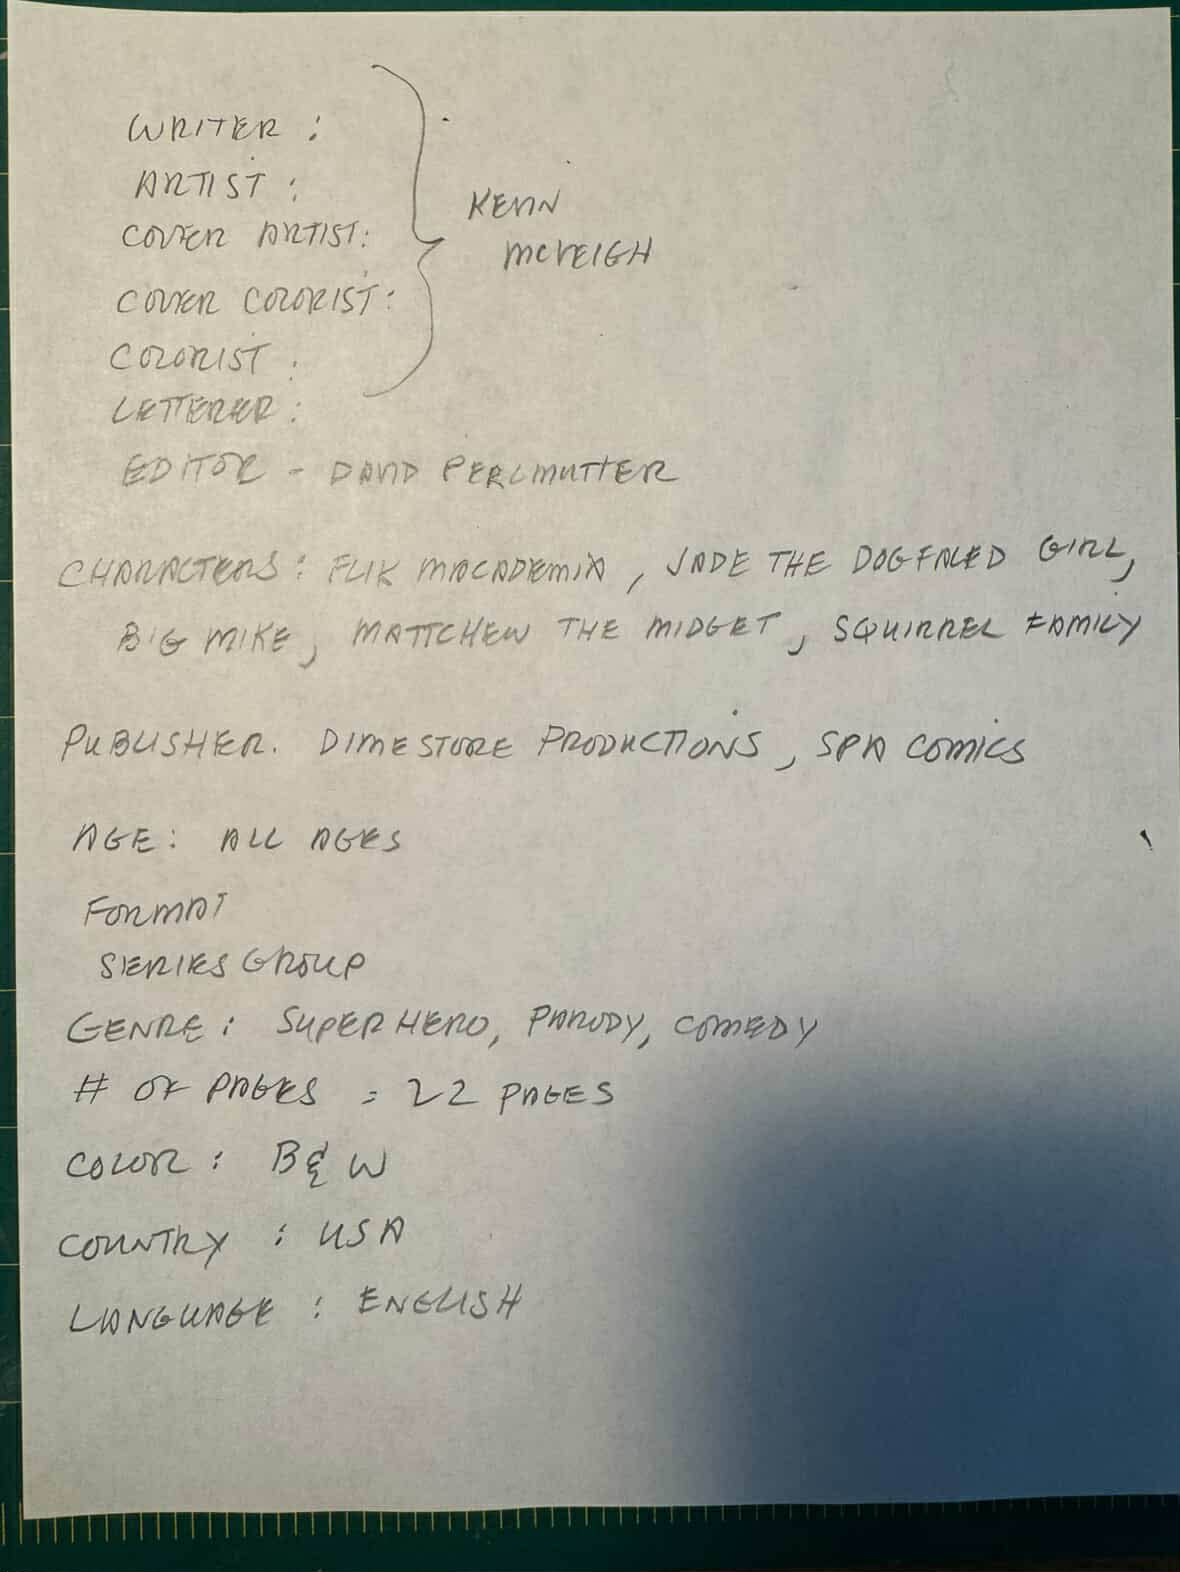 WRITER :
ARTIST :
COVER ARTIST:
COVER COLORIST:
COLORIST :
LETTERER :
KEVIN
MCVEIGH
EDITOR - DAVID PERLMUTTER
CHARACTERS : FLIK MACADEMIA , JADE THE DOGFACED GIRL,
BIG MIKE, MATTCHEW THE MIDGET, SQUIRREL FAMILY
PUBLISHER. DIMESTORE PRODUCTIONS, SPA COMICS
AGE: ALL AGES
FORMAT
SERIES GROUP
GENRE : SUPERHERO, PARODY, COMEDY
# OF PAGES = 22 PAGES
COLOR : B & W
COUNTRY : USA
LANGUAGE : ENGLISH